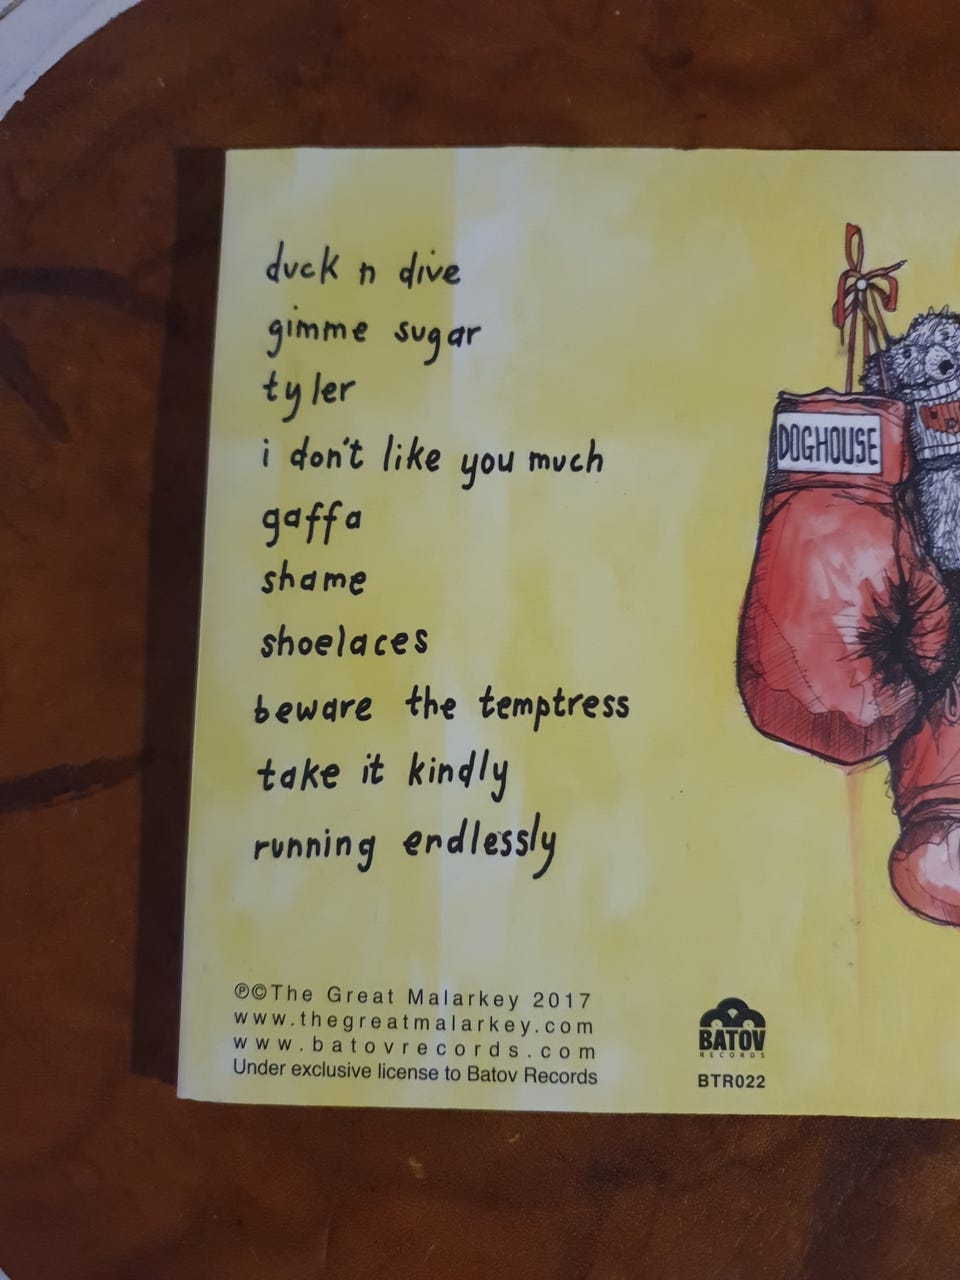 duck n dive
gimme sugar
tyler
i don't like you much
gaffa
shame
shoelaces
beware the temptress
take it kindly
running endlessly
DOGHOUSE
℗©The Great Malarkey 2017
www.thegreatmalarkey.com
www.batovrecords.com
Under exclusive license to Batov Records
BATOV
RECORDS
BTR022